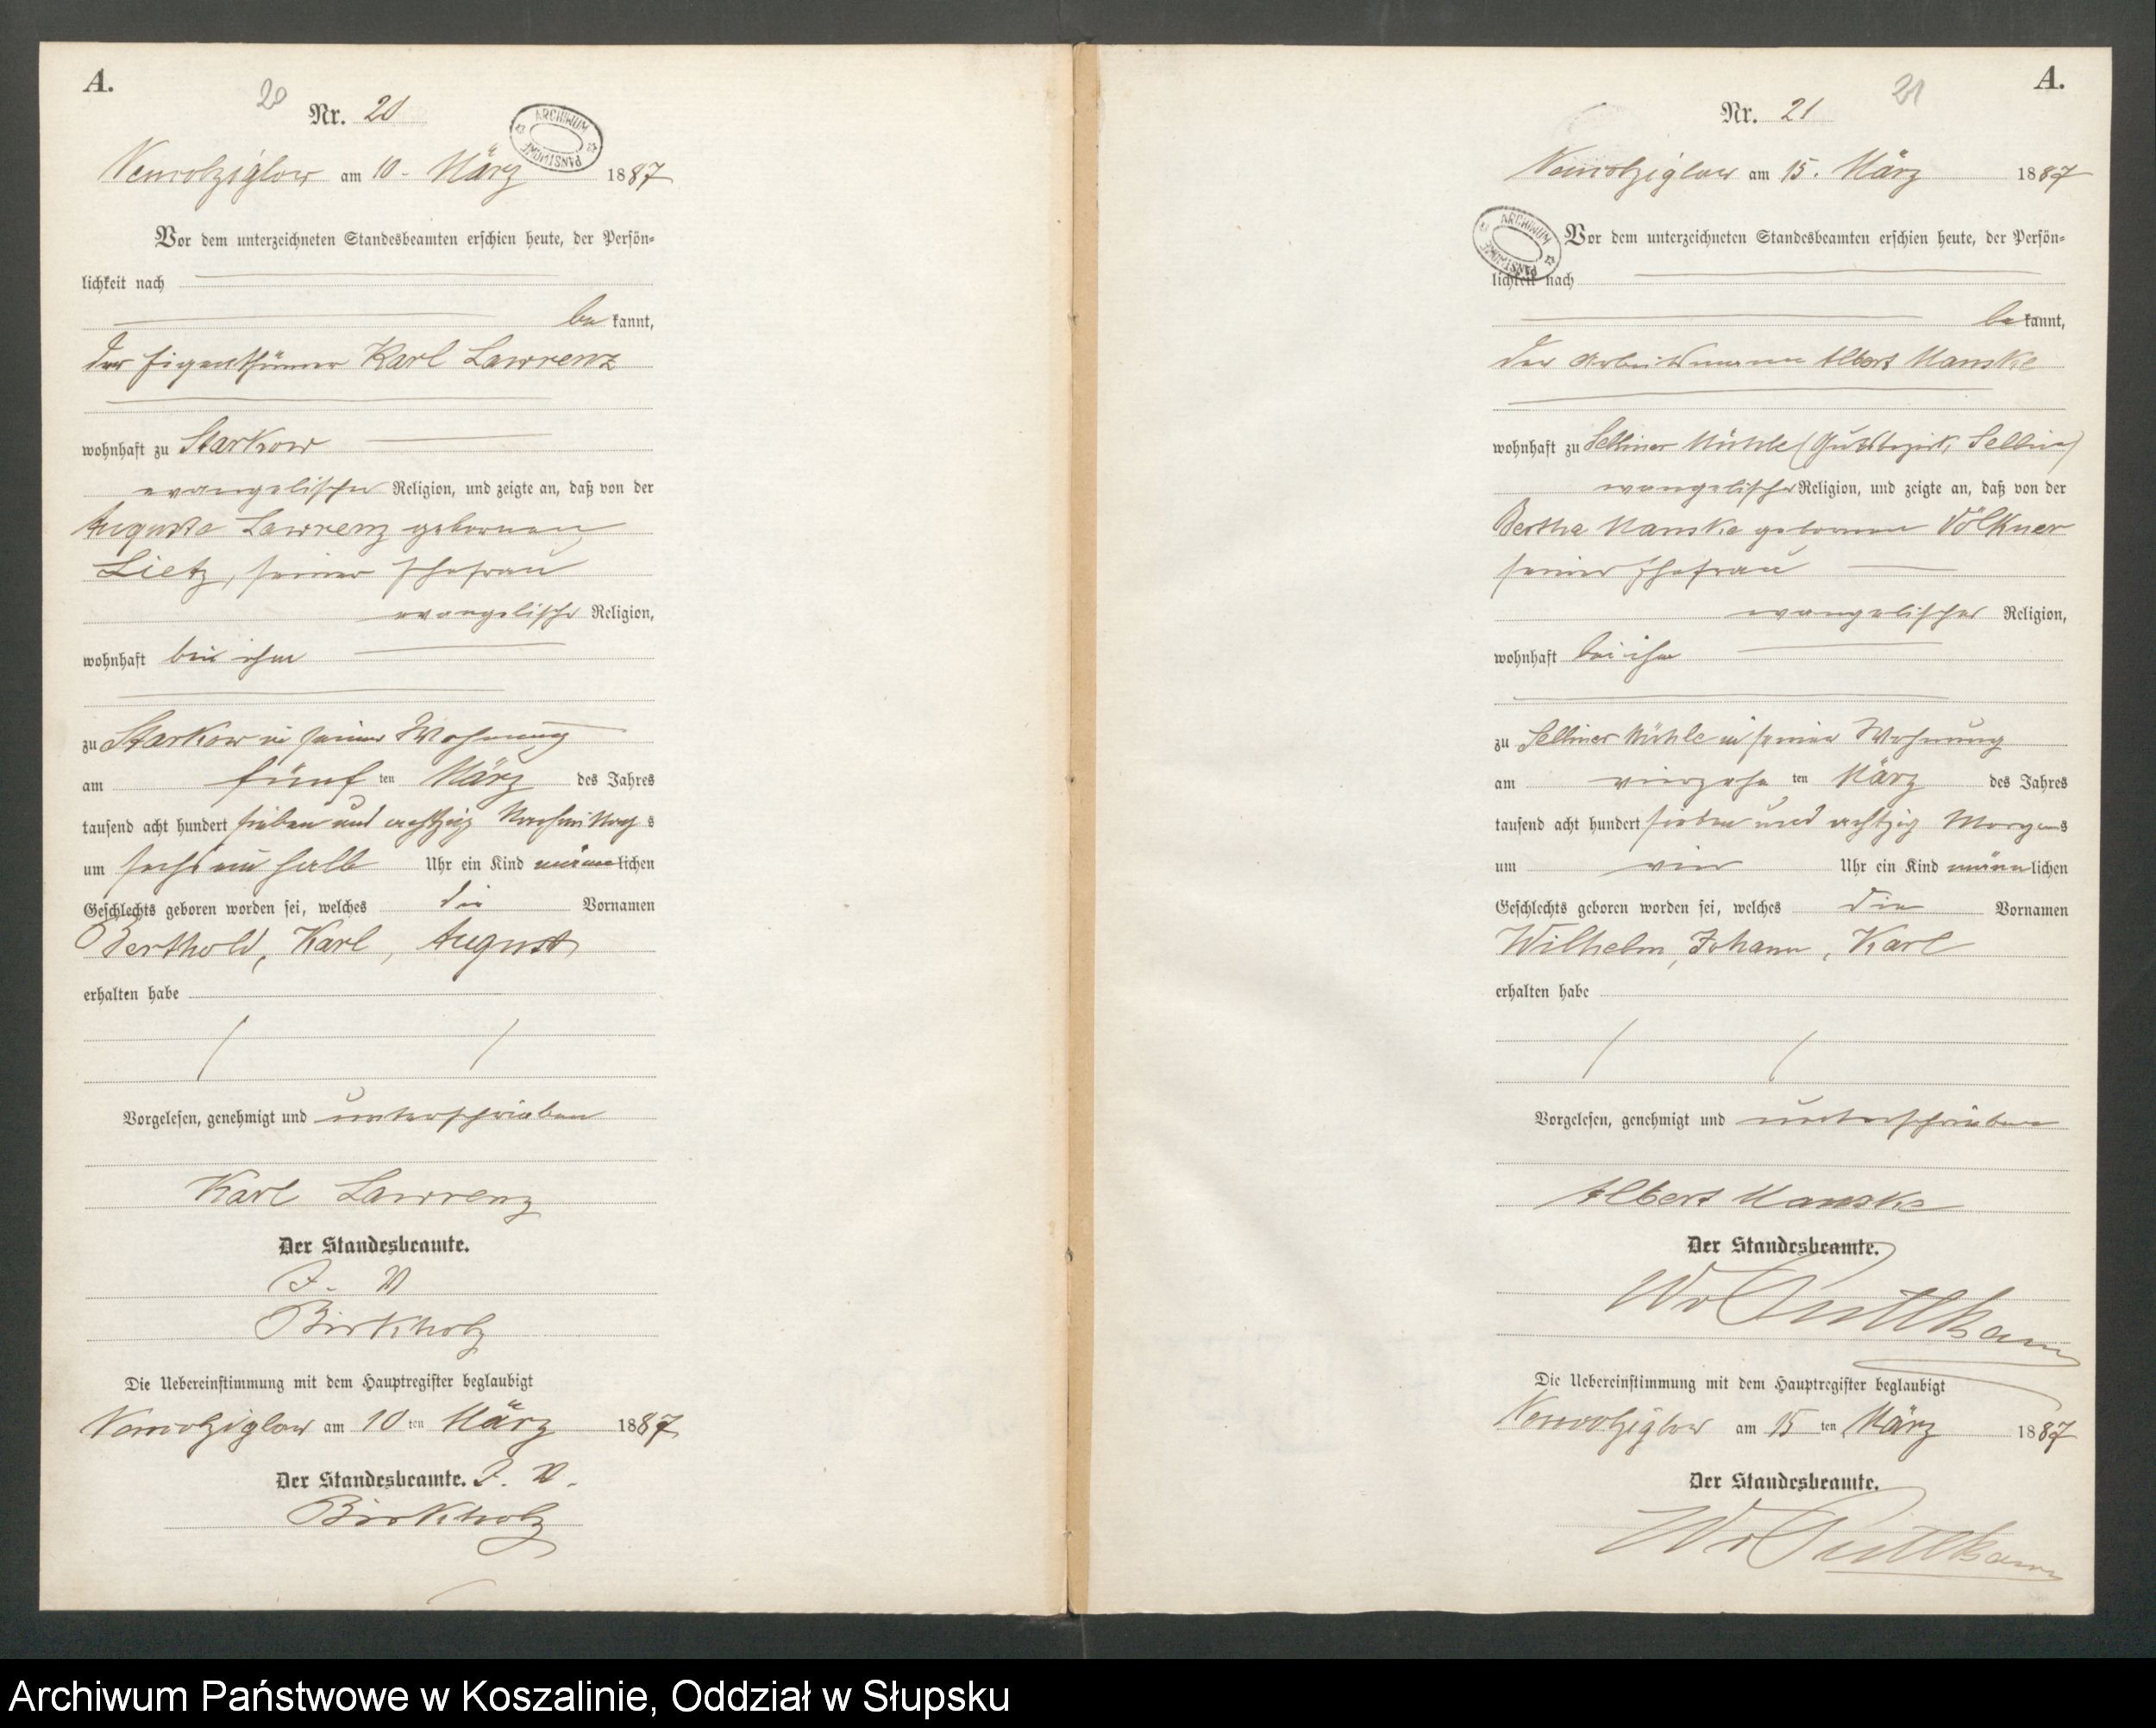 A.
20
Nr. 20
ARCHIWUM PAŃSTWOWE
Nemitziglow am 10. März 1887
Vor dem unterzeichneten Standesbeamten erschien heute, der Persön-
lichkeit nach
be kannt,
der Eigenthümer Karl Lawrenz
wohnhaft zu Starkow
evangelischer Religion, und zeigte an, daß von der
Auguste Lawrenz gebornen
Lietz, seiner Ehefrau
evangelischer Religion,
wohnhaft bei ihm
zu Starkow in seiner Wohnung
am fünf ten März des Jahres
tausend acht hundert sieben und achtzig Nachmittag s
um sechs ein halb Uhr ein Kind männ lichen
Geschlechts geboren worden sei, welches die Vornamen
Berthold, Karl, August
erhalten habe
Vorgelesen, genehmigt und unterschrieben
Karl Lawrenz
Der Standesbeamte.
J. V.
Birkholz
Die Uebereinstimmung mit dem Hauptregister beglaubigt
am 10 ten März 1887
Der Standesbeamte. J. V.
Birkholz
A.
21
Nr. 21
ARCHIWUM PAŃSTWOWE
am 15. März 1887
Vor dem unterzeichneten Standesbeamten erschien heute, der Persön-
lichkeit nach
be kannt,
der Arbeitsmann Albert Manske
wohnhaft zu Selliner Mühle (Gutsbezirk, Sellin)
evangelischer Religion, und zeigte an, daß von der
Bertha Manske gebornen Völkner
seiner Ehefrau
evangelischer Religion,
wohnhaft bei ihm
zu Selliner Mühle in seiner Wohnung
am vierzehn ten März des Jahres
tausend acht hundert sieben und achtzig Morgens
um vier Uhr ein Kind männ lichen
Geschlechts geboren worden sei, welches die Vornamen
Wilhelm, Johann, Karl
erhalten habe
Vorgelesen, genehmigt und unterschrieben
Albert Manske
Der Standesbeamte.
W v Puttkam
Die Uebereinstimmung mit dem Hauptregister beglaubigt
am 15 ten März 1887
Der Standesbeamte.
W v Puttkam
Archiwum Państwowe w Koszalinie, Oddział w Słupsku